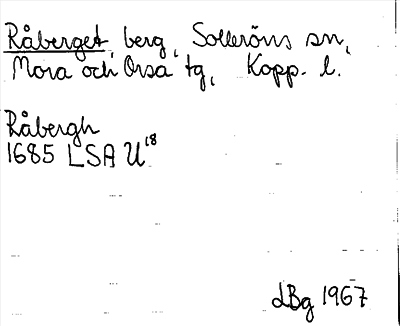 Råberget, berg, Solleröns sn,
Mora och Orsa tg, Kopp. l.
Råbergh
1685 LSA U 18
LBg 1967